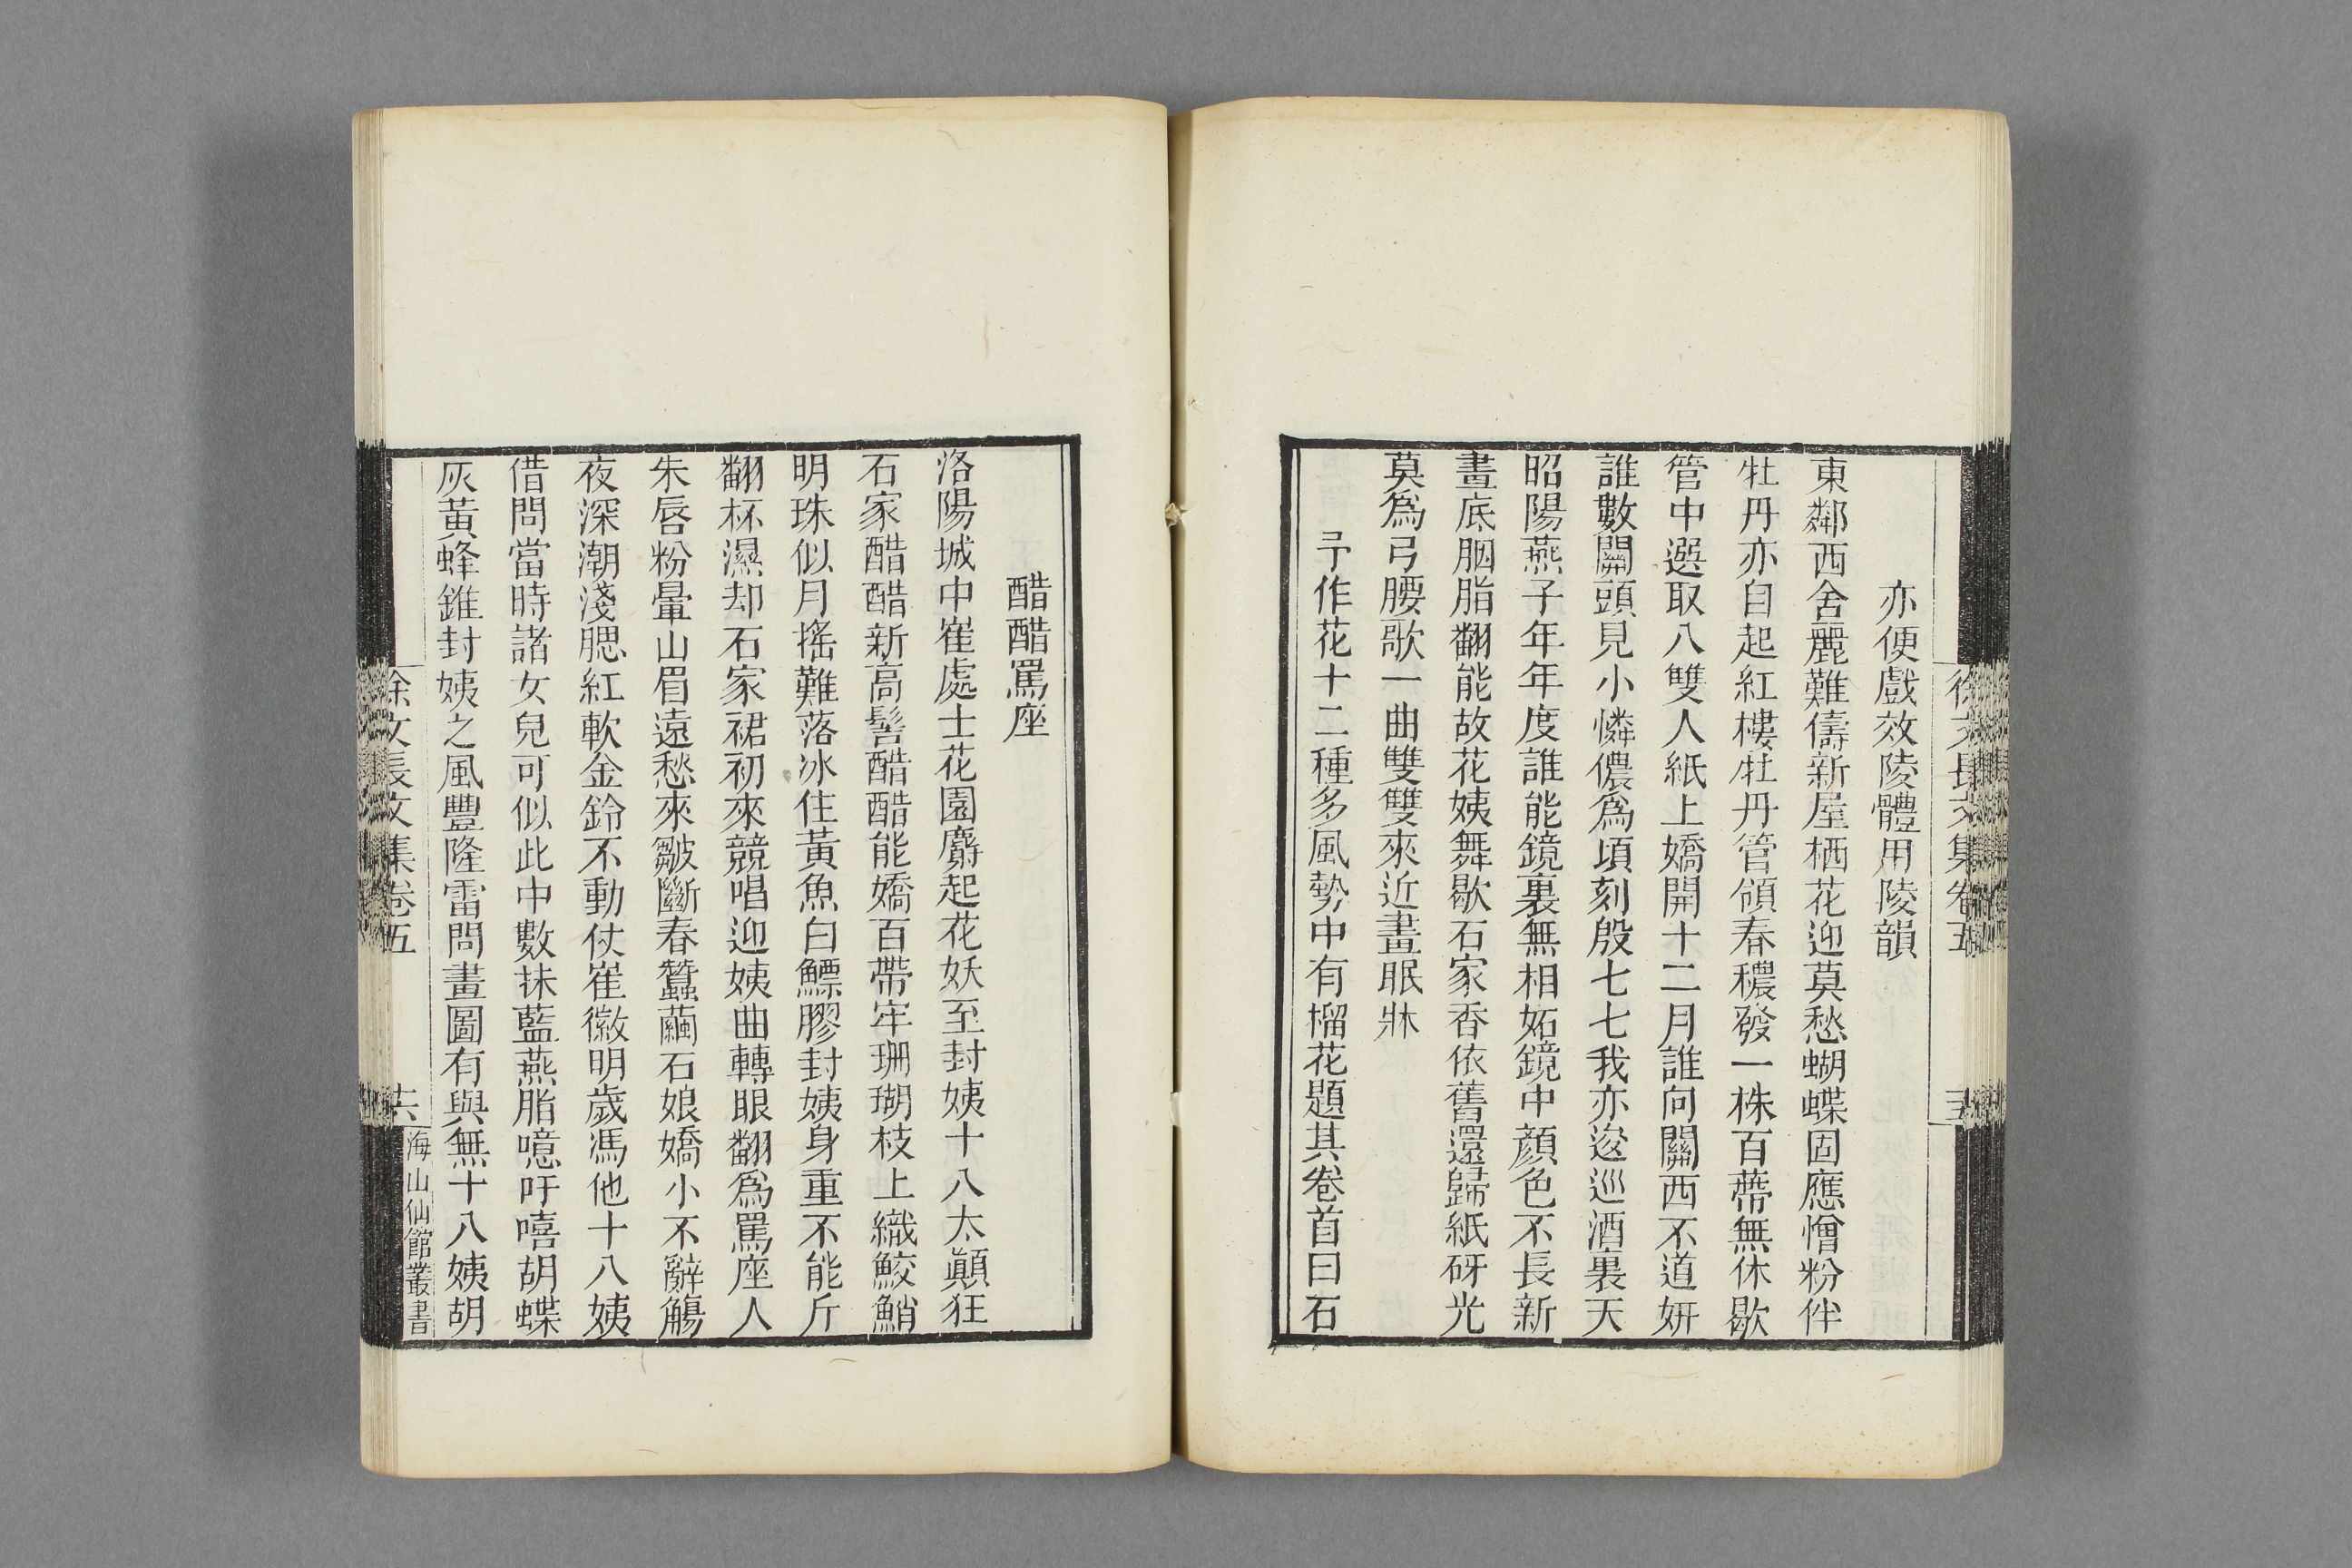 徐文長文集卷五
亦便戲效陵體用陵韻
東鄰西舍麗難儔新屋栖花迎莫愁蝴蝶固應憎粉伴
牡丹亦自起紅樓牡丹管領春穠發一株百蔕無休歇
管中選取八雙人紙上嬌開十二月誰向關西不道妍
誰數關頭見小憐儂爲頃刻殷七七我亦逡巡酒裏天
昭陽燕子年年度誰能鏡裏無相妬鏡中顔色不長新
畫底胭脂翻能故花姨舞歇石家香依舊還歸紙砑光
莫爲弓腰歌一曲雙雙來近晝眠牀
予作花十二種多風勢中有榴花題其卷首曰石
醋醋罵座
洛陽城中崔處士花園麝起花妖至封姨十八太顚狂
石家醋醋新高髻醋醋能嬌百帶牢珊瑚枝上織鮫鮹
明珠似月搖難落冰住黃魚白鰾膠封姨身重不能斤
翻杯濕却石家裙初來競唱迎姨曲轉眼翻爲罵座人
朱唇粉暈山眉遠愁來皺斷春蠶繭石娘嬌小不辭觴
夜深潮淺腮紅軟金鈴不動仗崔徽明歲馮他十八姨
借問當時諸女兒可似此中數抹藍燕脂噫吁嘻胡蝶
灰黃蜂錐封姨之風豐隆雷問畫圖有與無十八姨胡
徐文長文集卷五
十六
海山仙館叢書